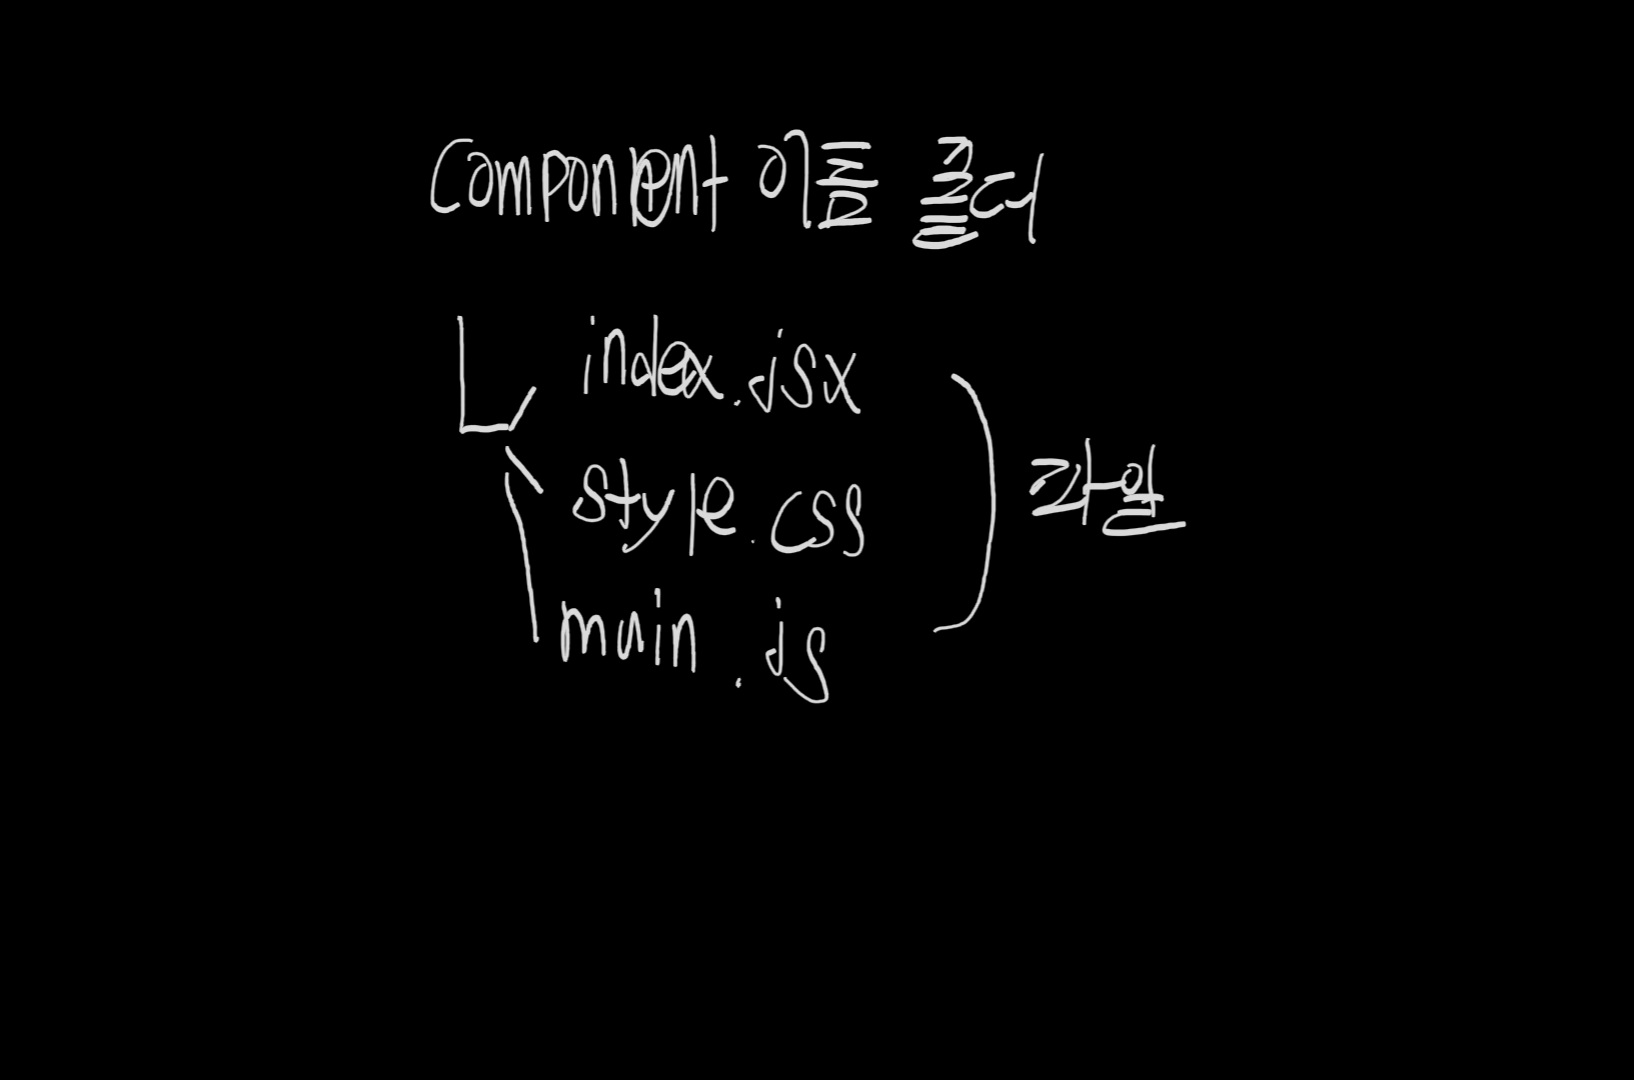 Component 이름 폴더
index.jsx
style.css
main.js
파일